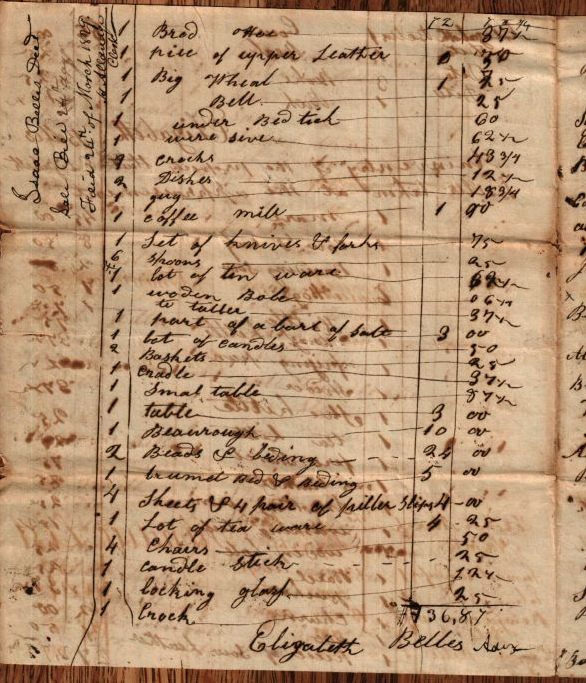 Isaac Belles Deed
See Bill
Filed 24th of March 1829
Clerk
1 Brod 37 1/2
1 piece of upper Leather 0 50
1 Big Wheal 1 25
1 Bell 25
1 under Bed tick 60
1 were sive 62 1/2
crocks 43 3/4
2 Dishes 12 1/2
1 gug 18 3/4
1 coffee mill 1 00
1 Set of knives & forks 75
6 spoons 25
1 lot of tin ware 62 1/2
1 wooden Bole 06 1/4
37 1/2
1 part of a barl of salt 3 00
1 lot of candles 50
2 Baskets 25
1 Cradle 37 1/2
1 Smal table 87 1/2
1 table 3 00
1 Beawrough 10 00
2 Beads & beding 24 00
1 trumel Bed & Beding 5 00
4 Sheets & 4 pair of piller Slips 4 00
1 Lot of tea ware 4 25
4 Chairs 50
1 candle stick 25
1 looking glass 12 1/2
1 Crock 25
$136,87
Elizabeth Belles Admx